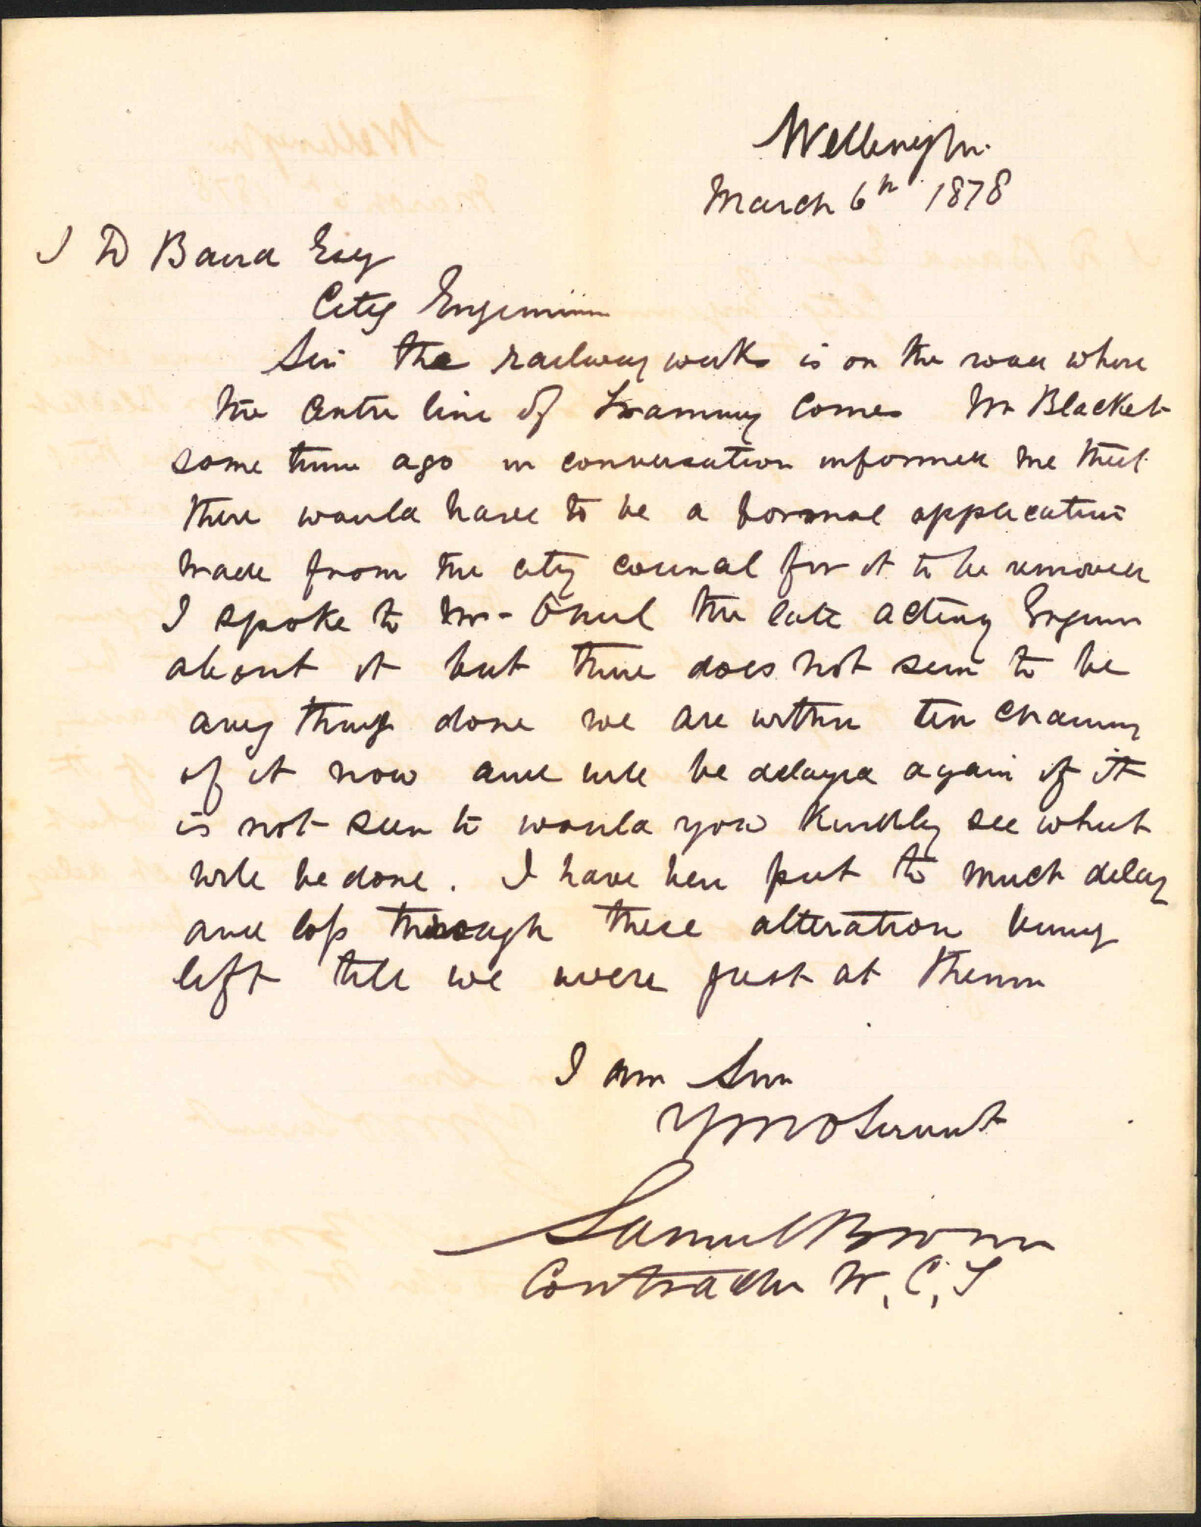 Wellington
March 6th 1878
J D Baird Esq
City Engineer
Sir the railway works is on the road where
the centre line of Tramway comes Mr Blacket
some time ago in conversation informed me that
there would have to be a formal application
made from the city council for it to be removed
I spoke to Mr the late acting Engineer
about it but there does not seem to be
any thing done we are within ten chains
of it now and will be delayed again if it
is not seen to would you kindly see what
will be done. I have been put to much delay
and loss through these alteration being
left till we were just at them
I am Sir
Servant
Samuel Brown
Contractor W, C, T